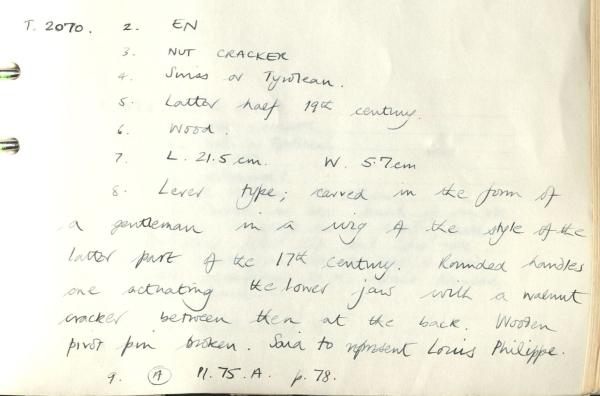 T. 2070. 2. EN
3. NUT CRACKER
4. Swiss or Tyrolean.
5. Latter half 19th century.
6. Wood.
7. L. 21.5 cm. W. 5.7cm
8. Lever type; carved in the form of
a gentleman in a wig of the style of the
latter part of the 17th century. Rounded handles
one actuating the lower jaw with a walnut
cracker between them at the back. Wooden
pivot pin broken. Said to represent Louis Philippe.
9. (A) Pl. 75. A. p. 78.